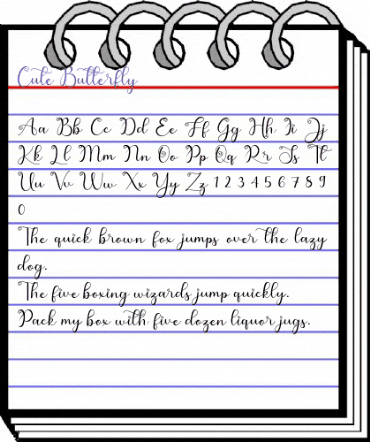 Cute Butterfly
Aa Bb Cc Dd Ee Ff Gg Hh Ii Jj
Kk Ll Mm Nn Oo Pp Qq Rr Ss Tt
Uu Vv Ww Xx Yy Zz 1 2 3 4 5 6 7 8 9
0
The quick brown fox jumps over the lazy
dog.
The five boxing wizards jump quickly.
Pack my box with five dozen liquor jugs.